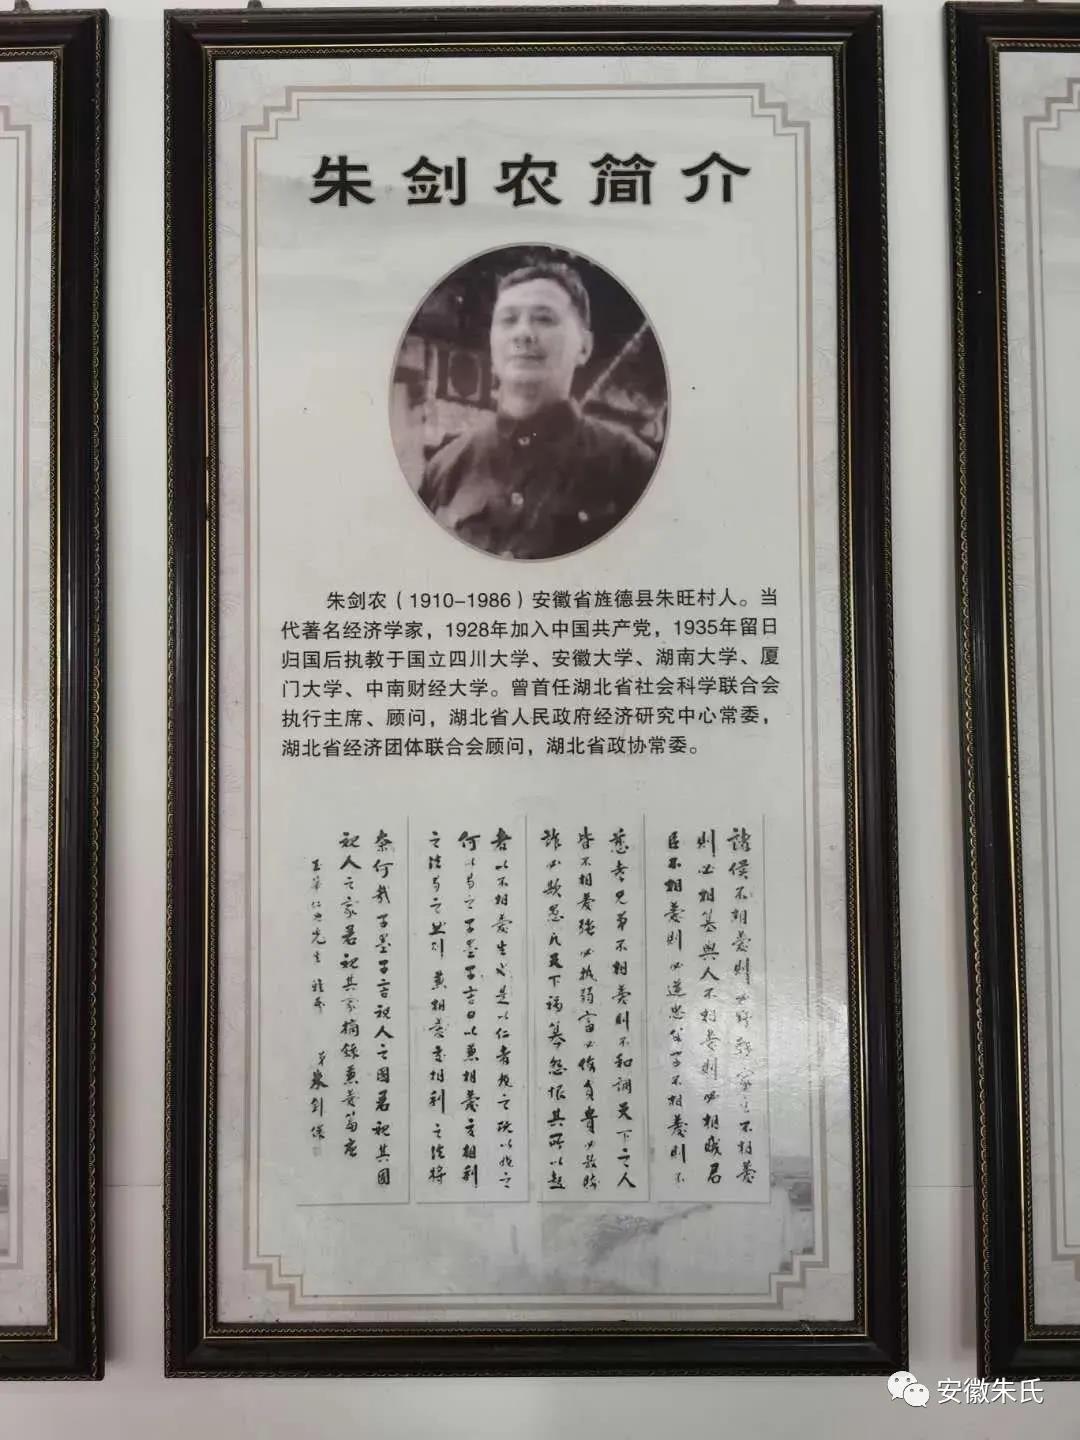 朱剑农简介
朱剑农（1910-1986）安徽省旌德县朱旺村人。当
代著名经济学家，1928年加入中国共产党，1935年留日
归国后执教于国立四川大学、安徽大学、湖南大学、厦
门大学、中南财经大学。曾首任湖北省社会科学联合会
执行主席、顾问，湖北省人民政府经济研究中心常委，
湖北省经济团体联合会顾问，湖北省政协常委。
諸侯不相愛則必野戰家主不相愛
則必相篡與人不相愛則必相賊君
臣不相愛則不
慈孝兄弟不相愛則不和調天下之人
皆不相愛強必執弱富必侮貧貴必敖賤
詐必欺愚凡天下禍篡怨恨其所以起
者以不相愛生也是以仁者
何以易之子墨子言曰以兼相愛交相利
之法易之然則兼相愛交相利之法將
奈何哉子墨子言視人之國若視其國
視人之家若視其家摘錄兼愛篇
安徽朱氏